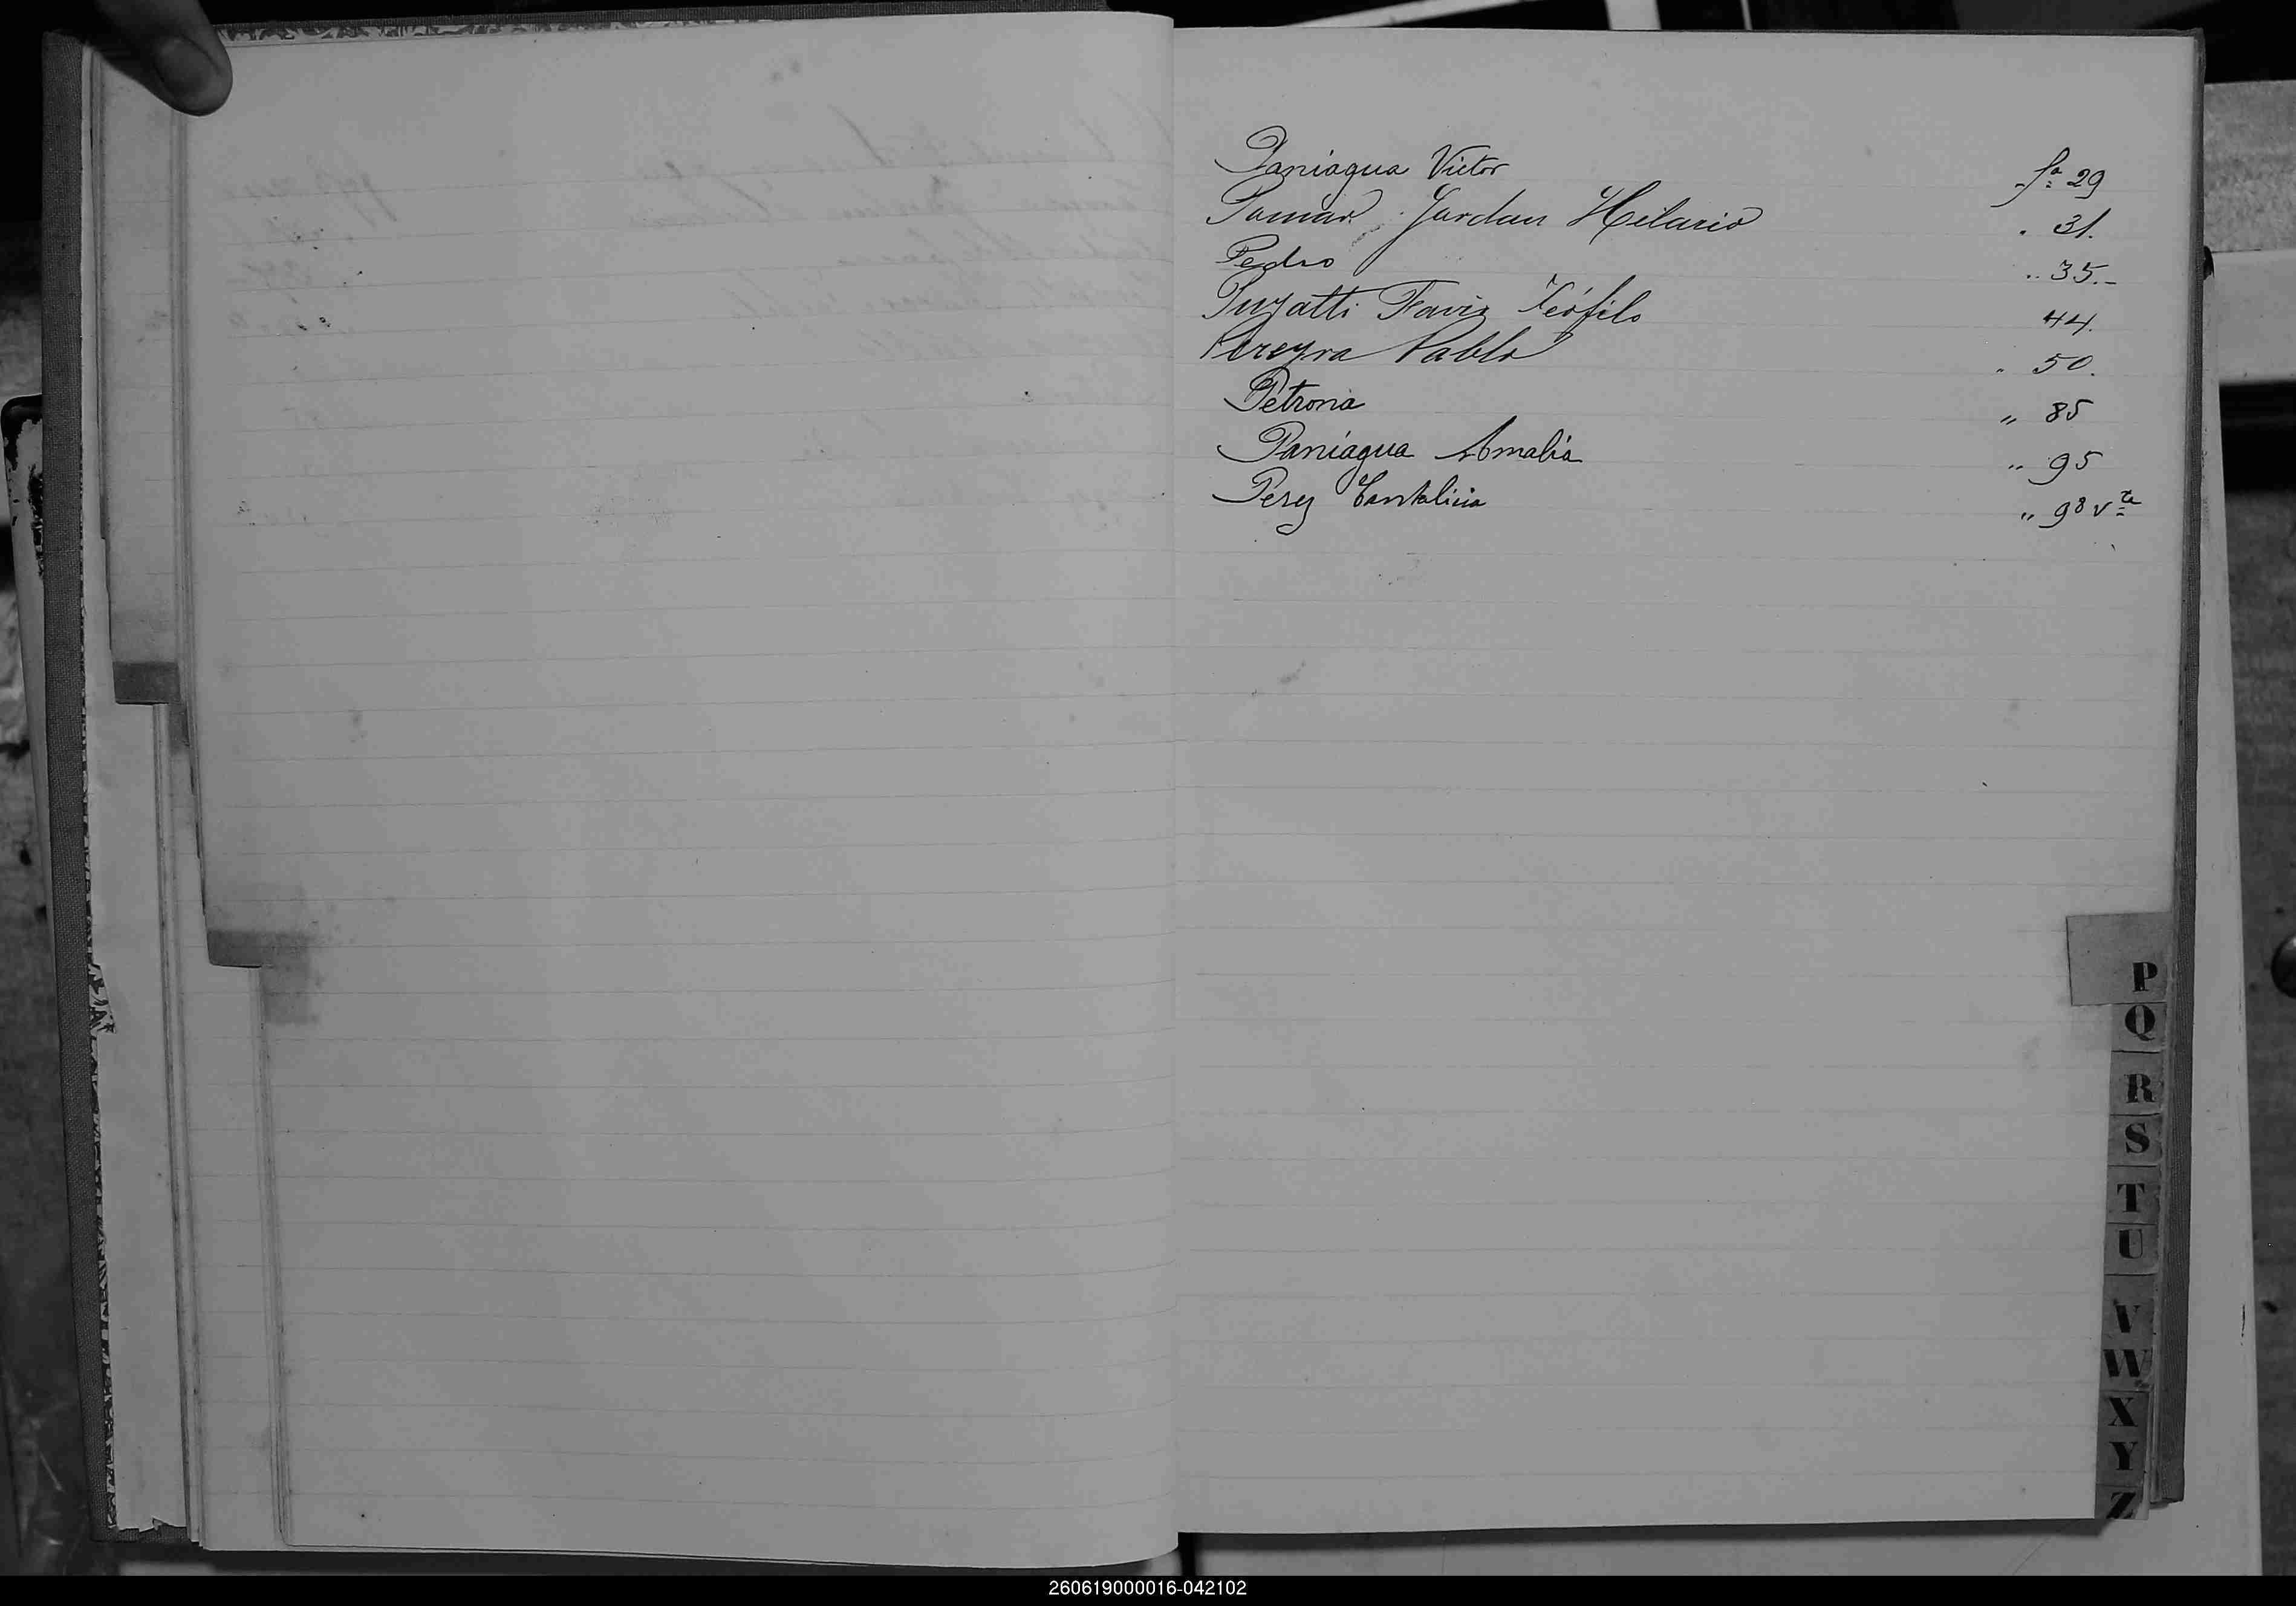 Paniagua Victor fª 29
Jordan Hilario . 31.
Pedro .. 35.-
Teófilo 44.
Pereyra Pablo . 50.
Petrona „ 85
Paniagua Amalia „ 95
Perez Cantalicia „ 98 vta
P
Q
R
S
T
U
V
W
X
Y
Z
260619000016-042102